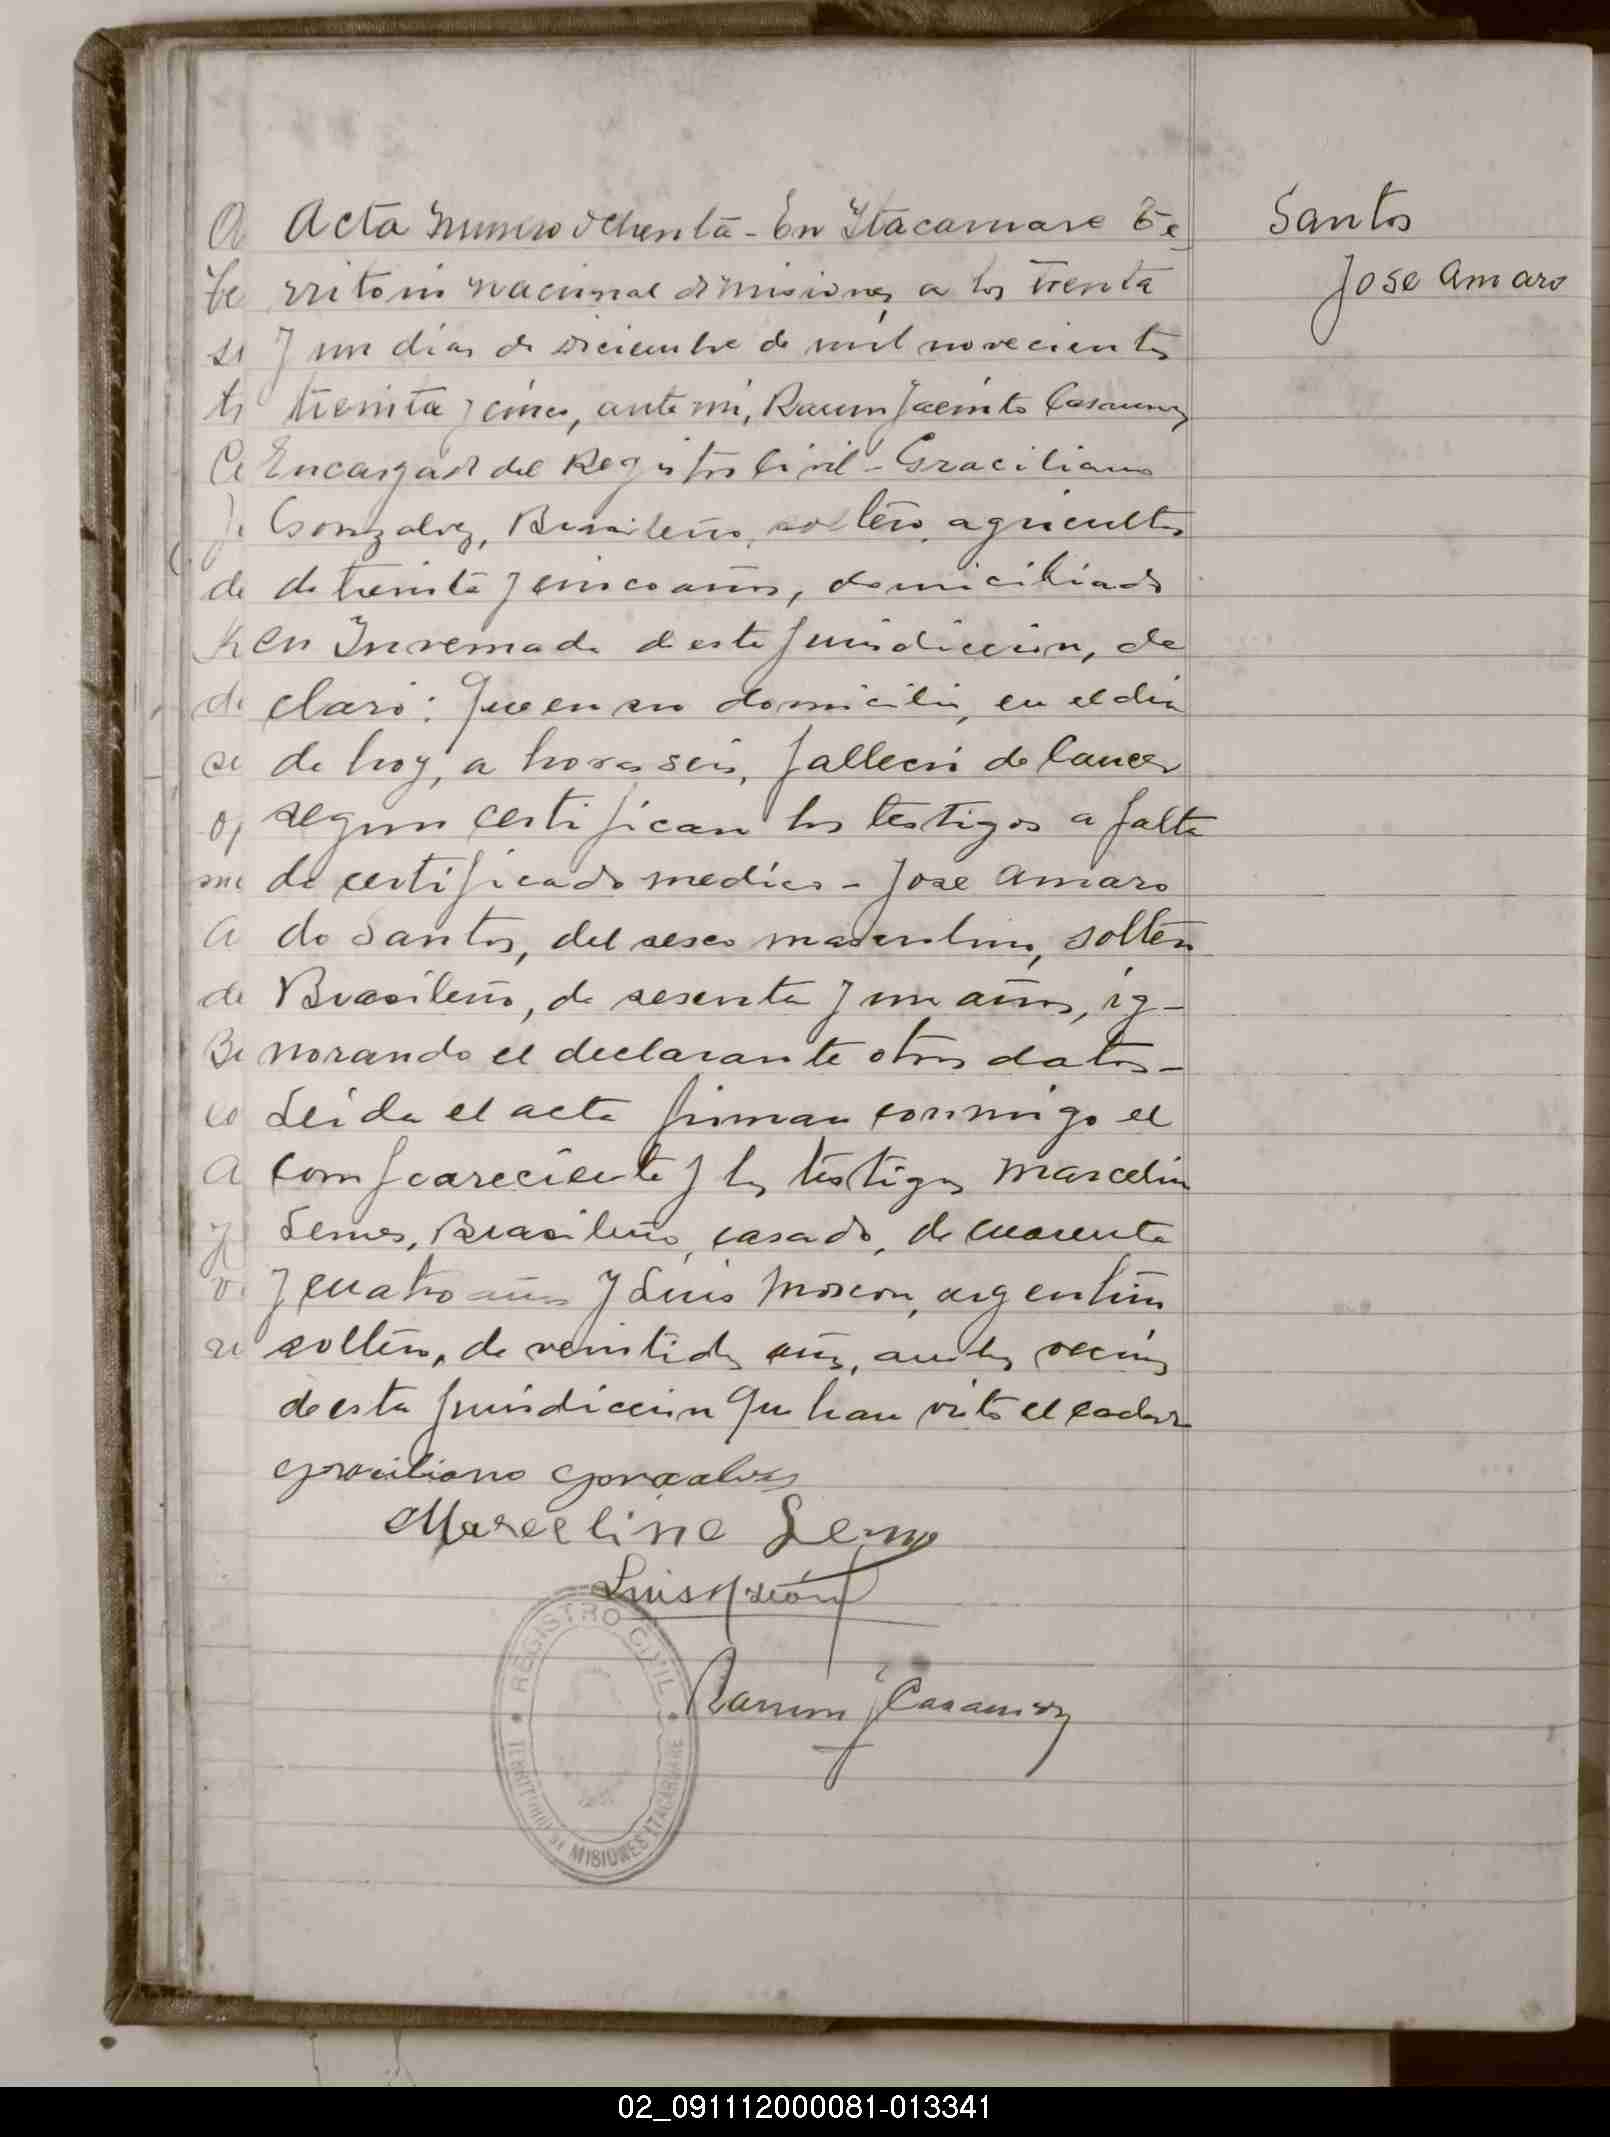 Acta numero ochenta - En Itacaruare Te-
rritorio nacional de misiones, a los treinta
y un dias de Diciembre de mil novecientos
treinta y cinco, ante mi, Ramon Jacinto
Encargado del Registro Civil - Graciliano
Gonzalvez, Brasileño, soltero, agricultor
de treinta y cinco años, domiciliado
en de esta Jurisdiccion, de
claró: Que en su domicilio, en el dia
de hoy, a horas seis, falleció de Cancer
segun certifican los testigos a falta
de certificado medico - Jose Amaro
do Santos, del sexo masculino, soltero
Brasileño, de sesenta y un años, ig-
norando el declarante otros datos -
Leida el acta firman conmigo el
compareciente y los testigos Marcelino
Lemes, Brasileño, casado, de cuarenta
y cuatro años y Luis Moseon, argentino
soltero, de veintidos años, ambos vecinos
de esta Jurisdiccion que han visto el cadaver
graciliano gonzalves
Marceline Leme
Luis
Ramon J
Santos
Jose Amaro
REGISTRO CIVIL
TERRITORIO DE MISIONES ITACARUARE
02_091112000081-013341